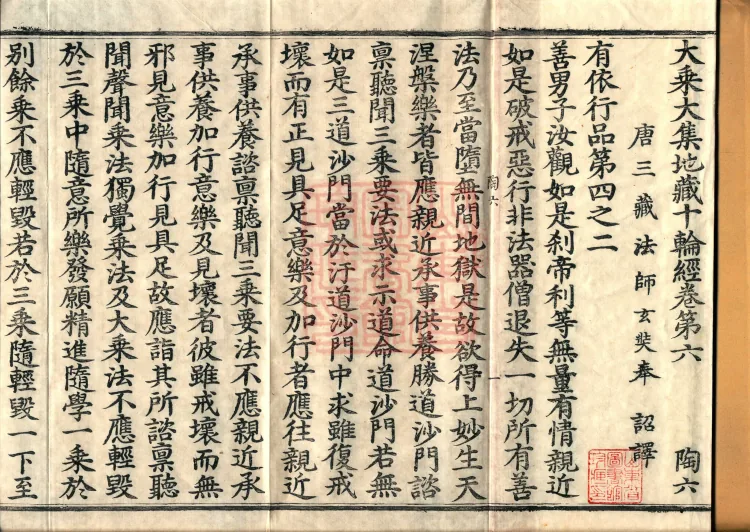 大乘大集地藏十輪經卷第六　陶六
唐三藏法師玄奘奉　詔譯
有依行品第四之二
善男子汝觀如是刹帝利等無量有情親近
如是破戒惡行非法器僧退失一切所有善
陶六　一
法乃至當墮無間地獄是故欲得上妙生天
涅槃樂者皆應親近承事供養勝道沙門諮
稟聽聞三乘要法或求示道命道沙門若無
如是三道沙門當於汙道沙門中求雖復戒
壞而有正見具足意樂及加行者應往親近
承事供養諮稟聽聞三乘要法不應親近承
事供養加行意樂及見壞者彼雖戒壞而無
邪見意樂加行見具足故應詣其所諮稟聽
聞聲聞乘法獨覺乘法及大乘法不應輕毀
於三乘中隨意所樂發願精進隨學一乘於
別餘乘不應輕毀若於三乘隨輕毀一下至